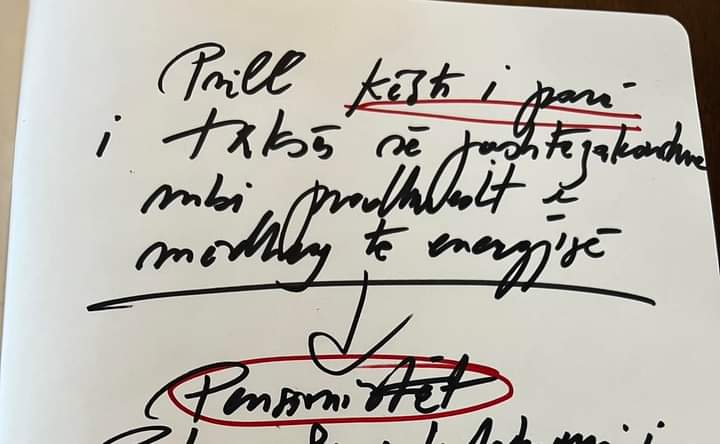 Prill kësti i parë
i taksës së jashtëzakonshme
mbi prodhuesit e
mëdhenj të energjisë
Pensionistët